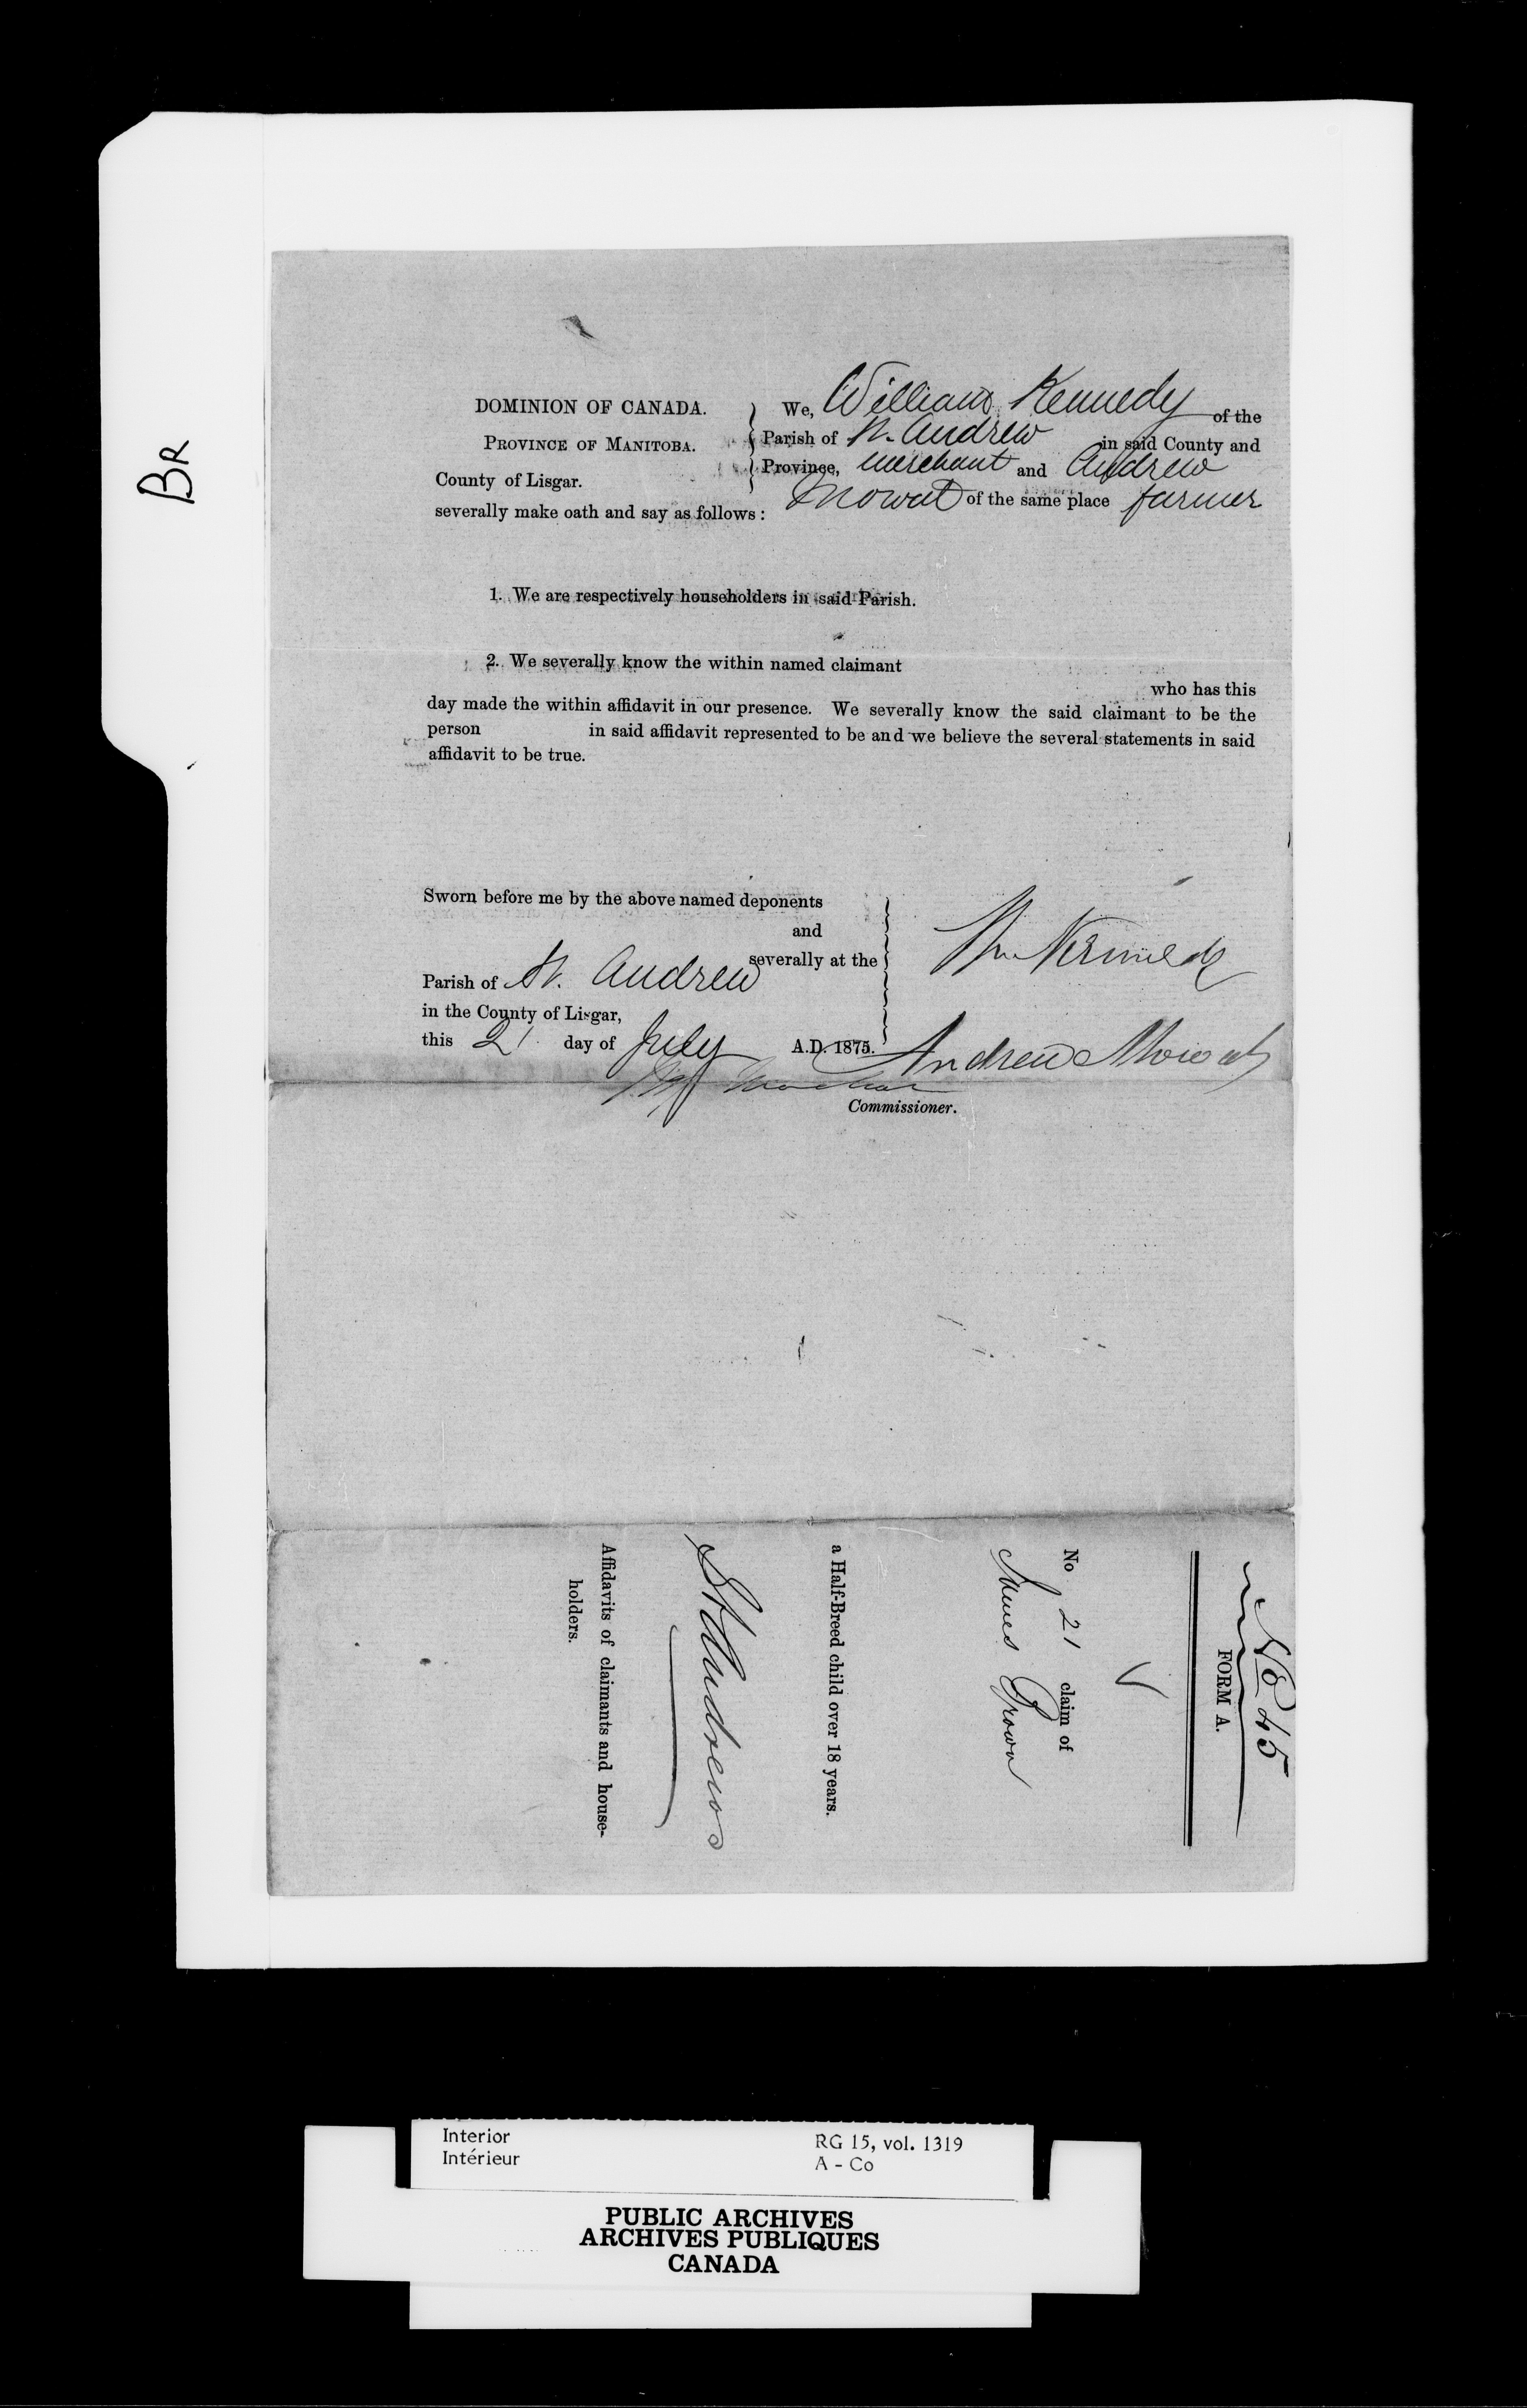 BR
DOMINION OF CANADA.
PROVINCE OF MANITOBA.
County of Lisgar.
We, William Kennedy of the
Parish of St. Andrew in said County and
Province, merchant and Andrew
Mowat of the same place farmer
severally make oath and say as follows:
1. We are respectively householders in said Parish.
2. We severally know the within named claimant
who has this
day made the within affidavit in our presence. We severally know the said claimant to be the
person in said affidavit represented to be and we believe the several statements in said
affidavit to be true.
Sworn before me by the above named deponents
and
severally at the
Parish of St. Andrew
in the County of Lisgar,
this 21 day of July A.D. 1875.
Wm Kennedy
Andrew Mowat
Commissioner.
No 45
FORM A.
No 21 claim of
James Brown
a Half-Breed child over 18 years.
St Andrews
Affidavits of claimants and house-
holders.
Interior
Intérieur
RG 15, vol. 1319
A - Co
PUBLIC ARCHIVES
ARCHIVES PUBLIQUES
CANADA